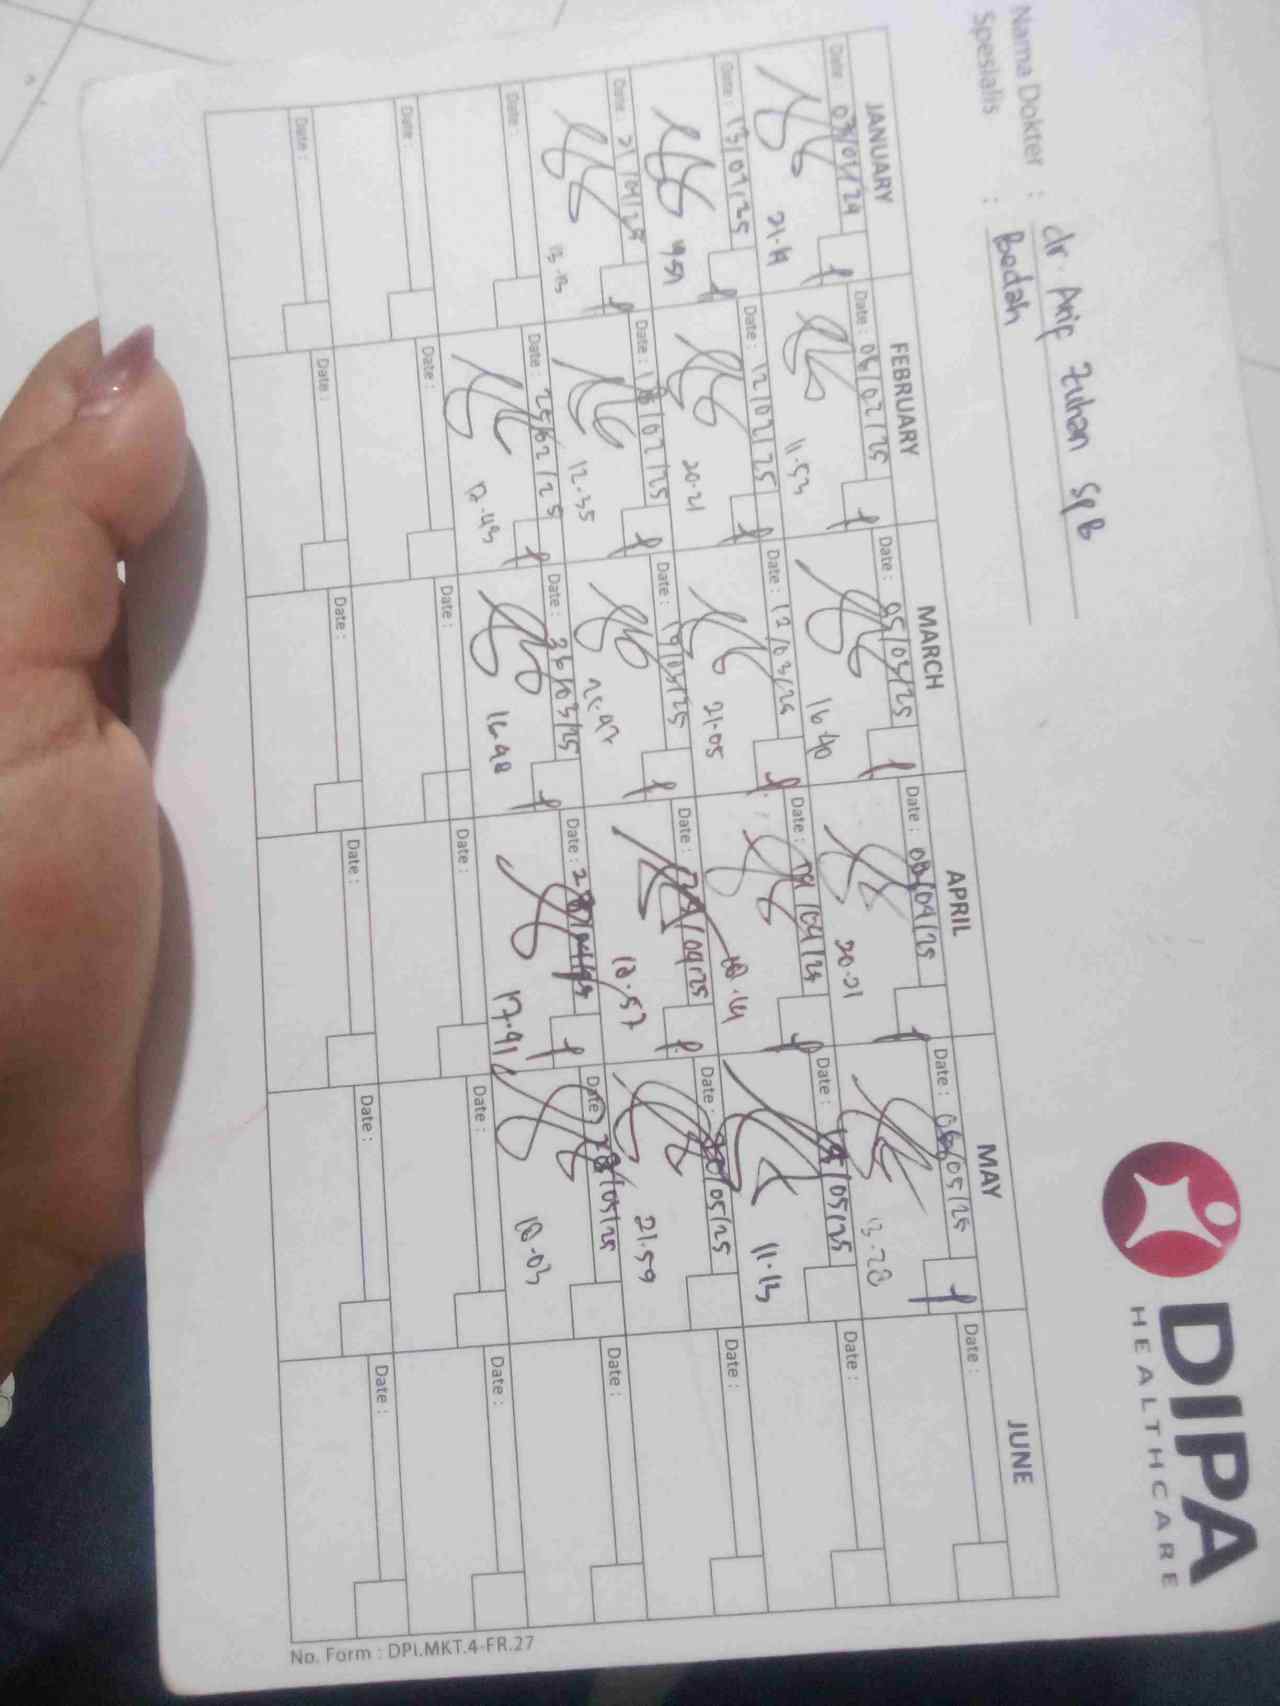 DIPA
HEALTHCARE
Nama Dokter : dr. Arif Zuhan SpB
Spesialis : Bedah
JANUARY FEBRUARY MARCH APRIL MAY JUNE
Date : 03/01/24 Date : 05/02/25 Date : 05/03/25 Date : 08/04/25 Date : 06/05/25 Date :
11.53 16.40 20.21 13.28
Date : 13/01/25 Date : 12/02/25 Date : 12/03/25 Date : /04/25 Date : /05/25 Date :
20.21 21.05 18.14 11.13
Date : 21/01/25 Date : 18/02/25 Date : 19/03/25 Date : /04/25 Date : 20/05/25 Date :
13.13 12.35 12.57 21.59
Date : Date : 25/02/25 Date : 26/03/25 Date : 28/04/25 Date : 28/05/25 Date :
17.43 16.48 17.41 18.03
Date : Date : Date : Date : Date : Date :
Date : Date : Date : Date : Date : Date :
No. Form : DPI.MKT.4-FR.27